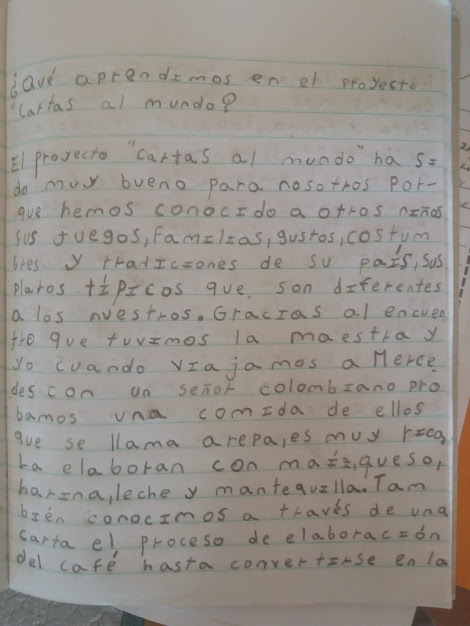 ¿Qué aprendimos en el proyecto
"Cartas al mundo?
El proyecto "Cartas al mundo" ha si-
do muy bueno para nosotros por-
que hemos conocido a otros niños
sus juegos, familias, gustos, costum
bres y tradiciones de su país, sus
platos típicos que son diferentes
a los nuestros. Gracias al encuen
tro que tuvimos la maestra y
yo cuando viajamos a Merce
des con un señor colombiano pro
bamos una comida de ellos
que se llama arepa, es muy rica,
la elaboran con maíz, queso,
harina, leche y mantequilla. Tam
bién conocimos a través de una
carta el proceso de elaboración
del café hasta convertirse en la